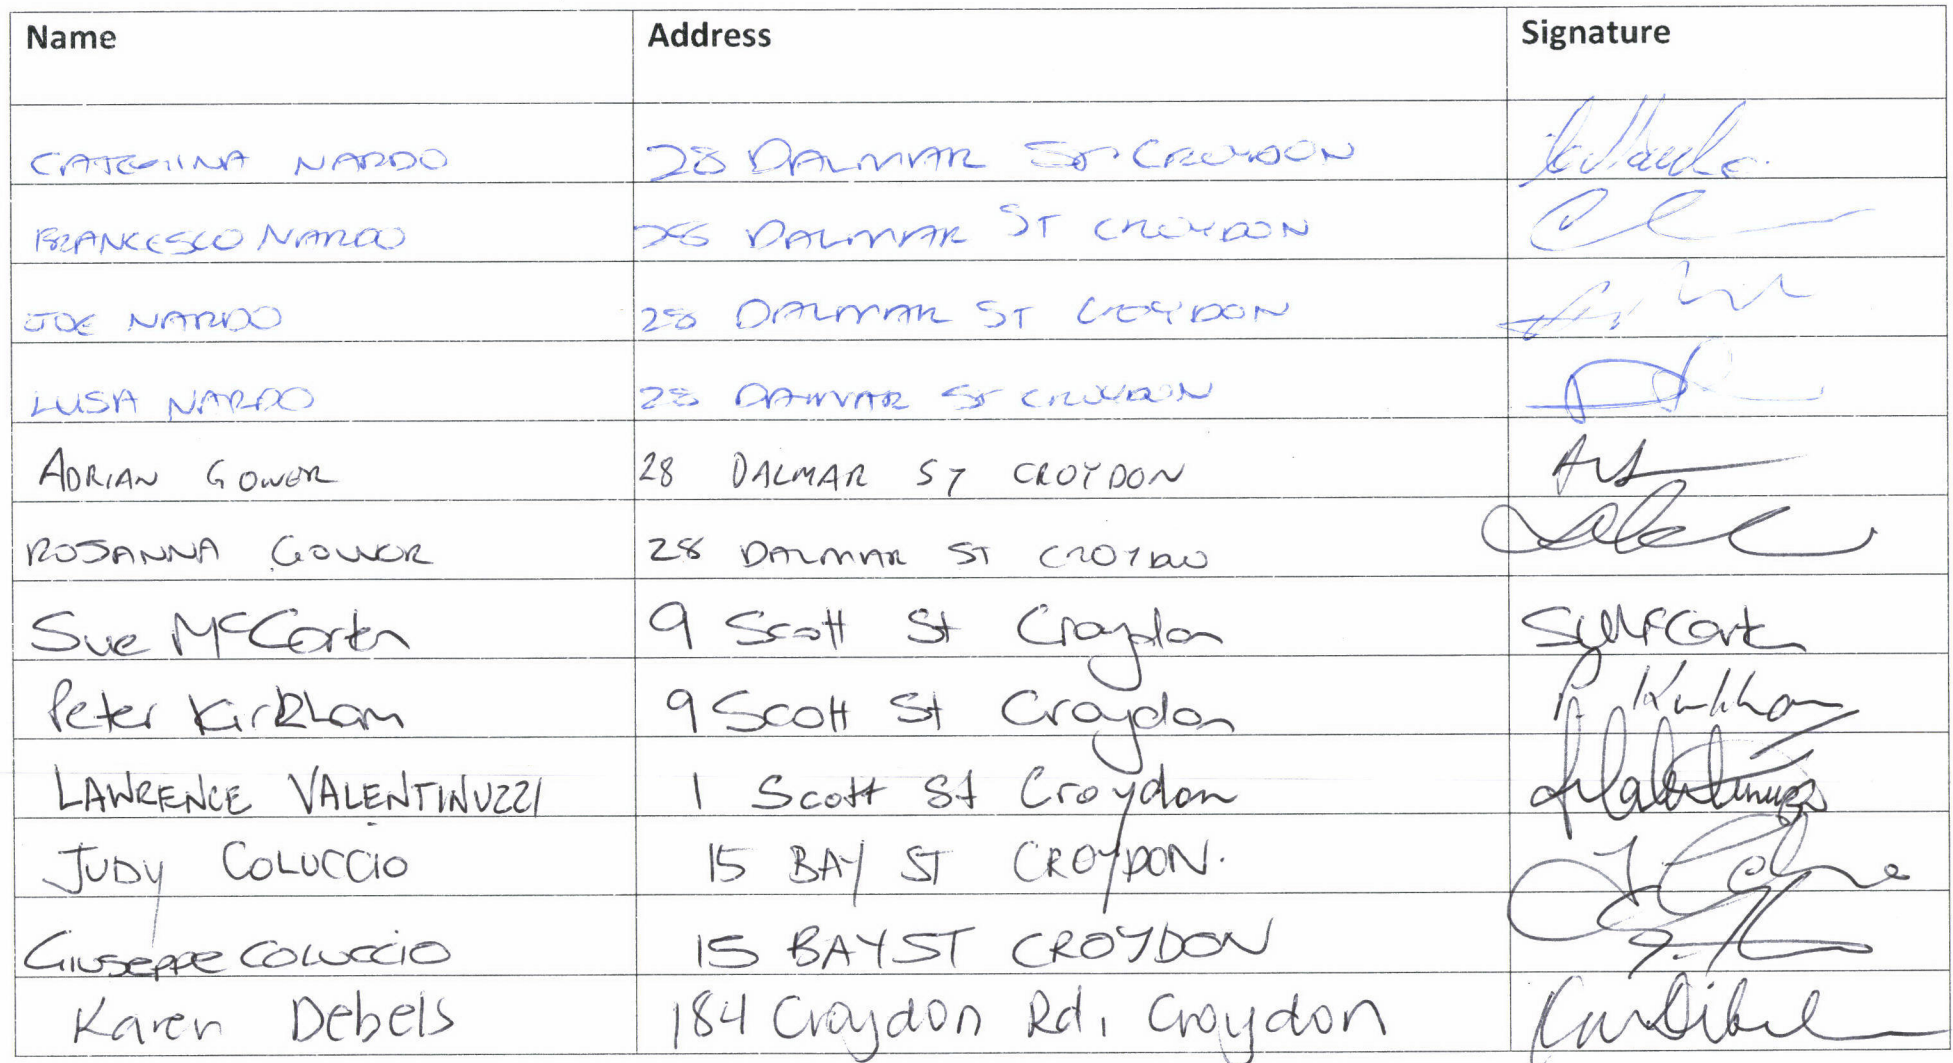 Name Address Signature
CATERINA NARDO 28 DALMAR ST CROYDON
FRANCESCO NARDO 28 DALMAR ST CROYDON
JOE NARDO 28 DALMAR ST CROYDON
LUSA NARDO 28 DALMAR ST CROYDON
ADRIAN GOWER 28 DALMAR ST CROYDON
ROSANNA GOWER 28 DALMAR ST CROYDON
Sue McCarten 9 Scott St Croydon
Peter Kirkham 9 Scott St Croydon P. Kirkham
LAWRENCE VALENTINUZZI 1 Scott St Croydon
JUDY COLUCCIO 15 BAY ST CROYDON.
GIUSEPPE COLUCCIO 15 BAY ST CROYDON
Karen Debels 184 Croydon Rd, Croydon